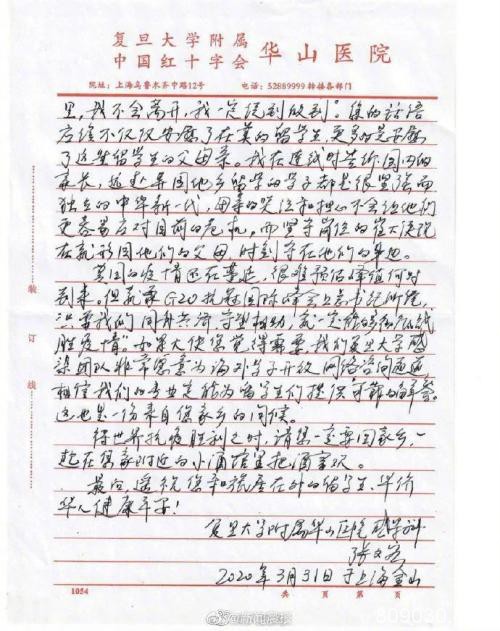 复旦大学附属
中国红十字会 华山医院
院址：上海乌鲁木齐中路12号 电话：52889999转接各部门
里，我不会离开，我一定说到做到”。您的话语
应该不仅仅安慰了在英的留学生，更多的是安慰
了这些留学生的父母亲。我在连线时告诉国内的
家长，远赴异国他乡留学的学子都是很坚强而
独立的中华新一代，母亲的哭泣和担心不会让他们
更容易应对目前的危机，而坚守岗位的崔大使现
在就形同他们的父母，时刻守在他们的身边。
英国的疫情还在蔓延，很难预估峰值何时
到来。但就像G20抗疫国际峰会上总书记所说，
只要我们同舟共济、守望相助，就一定能够彻底战
胜疫情。如果大使您觉得需要，我们复旦大学感
染团队非常愿意为海外学子开放网络咨询通道，
相信我们的专业定能为留学生们提供可靠的解答。
这也是一份来自您家乡的问候。
待世界抗疫胜利之时，请您一定要回家乡，一
起在您家附近的小酒馆里把酒言欢。
最后，遥祝您和旅居在外的留学生、华侨
华人健康平安！
复旦大学附属华山医院感染科
张文宏
2020年3月31日于上海金山
装
订
线
1054 共 页 第 页
@新闻晨报